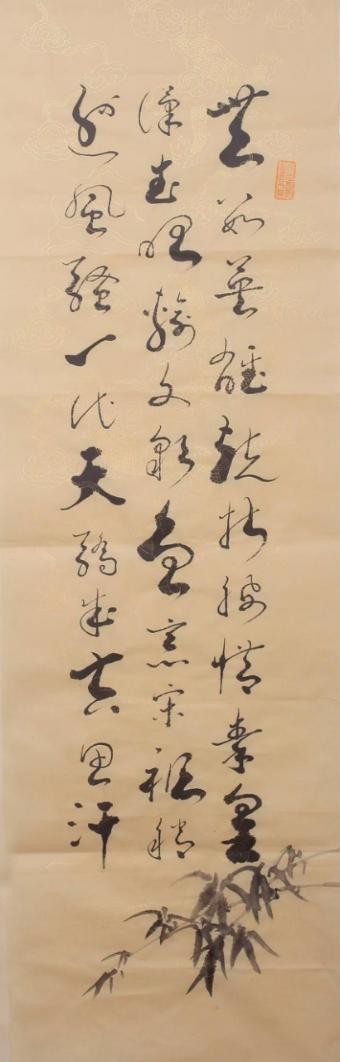 無数英雄競折腰惜秦皇
漢武略輸文采唐宗宋祖稍
遜風騷一代天驕成吉思汗